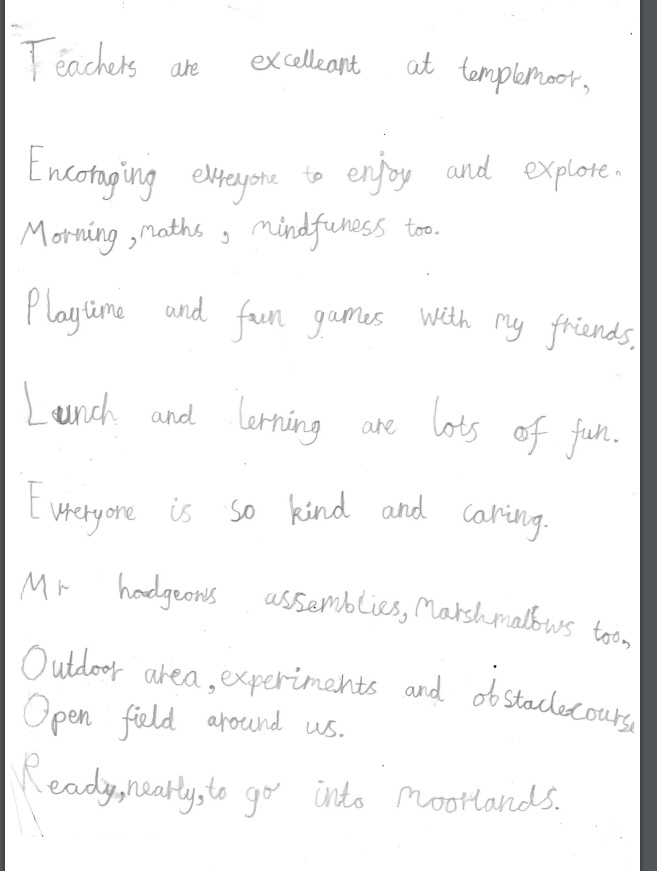 Teachers are excelleant at templemoor,
Encoraging evreyone to enjoy and explore.
Morning, maths, mindfuness too.
Playtime and fun games with my friends.
Lunch and lerning are lots of fun.
Evreryone is so kind and caring.
Mr hodgeons assemblies, Marshmallows too,
Outdoor area, experiments and obstaclecourse
Open field around us.
Ready, nearly, to go into Moorlands.